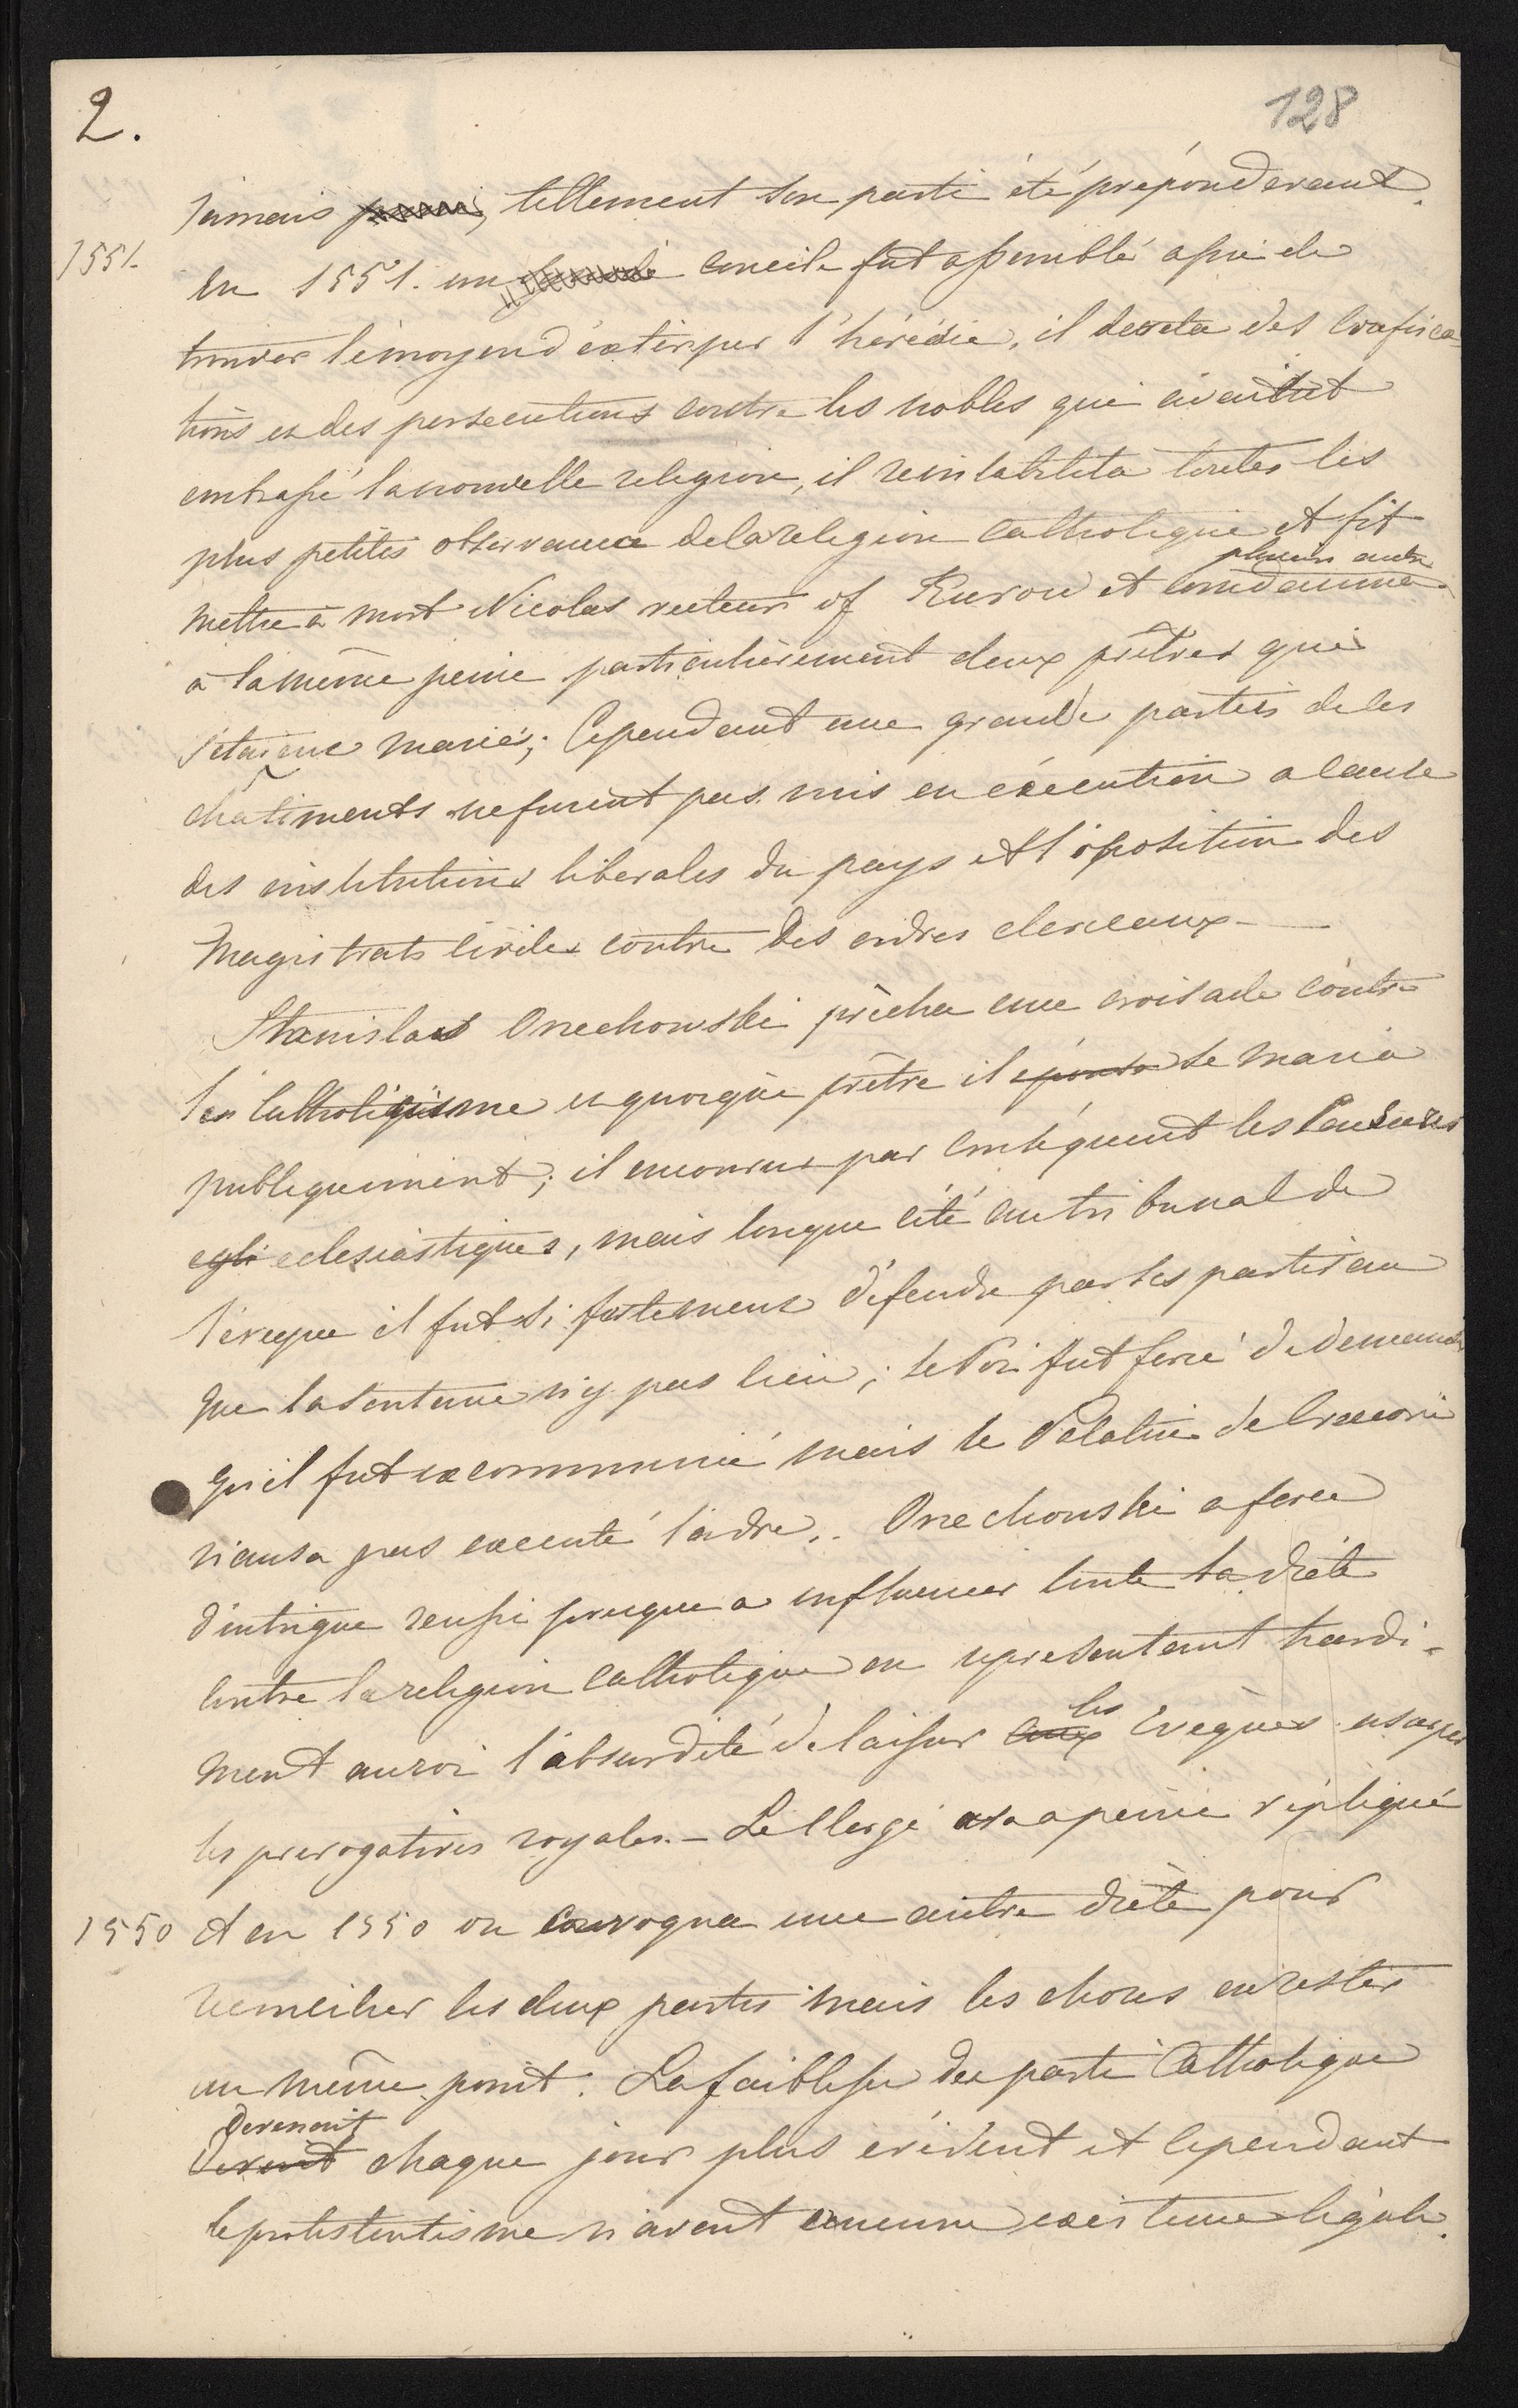 2.
128
jamais tellement son parti été préponderant.
1551.
En 1551. un concile fut assemblé afin de
trouver le moyen d'extirper l'héresie, il decreta des Confisca
tions et des persecutions contre les nobles qui avaient
embrassé la nouvelle religion, il reinhabilita toutes les
plus petites observance de la religion Catholique et fit
plusieurs autre
mettre à mort Nicolas recteur of Kurow et condamna
à la même peine particulièrement deux prêtres qui
s'étaient mariés; Cependant une grande parties de les
chatiments ne furent pas mis en éxecution a cause
des institutions liberales du pays et l'oposition des
Magistrats civiles contre les ordres clericaux —
Stanislas Orzechowski prêcha une croisade contre
le Catholiquisme et quoique prêtre il épousa se maria
publiquement; il encourus par conséquent les Censures
egli eclesiastiques, mais lorsque cité au tribunal de
l'éveque il fut si fortement défendu par ses partisan
que la sentence n'y pas lieu; le Roi fut forcé de demander
qu'il fut excommunié mais le Palatin de Cracovie
n'ausa pas executé l'ordre. Orzechowski a force
d'intrigue reussi presque a influencer toute la diète
contre la religion Catholique en representant hardi-
les
ment au roi l'absurdité de laisser aux Evêques usurper
les prerogatives royales. — Le Clergé a a peine répliqué
1550
et en 1550 on convoqua une autre diète pour
reconcilier les deux partis mais les choses en restés
au même point. La faiblesse du parti Catholique
devenait
devint chaque jour plus évident et cependant
le protestentisme n'avent aucune existence légale.